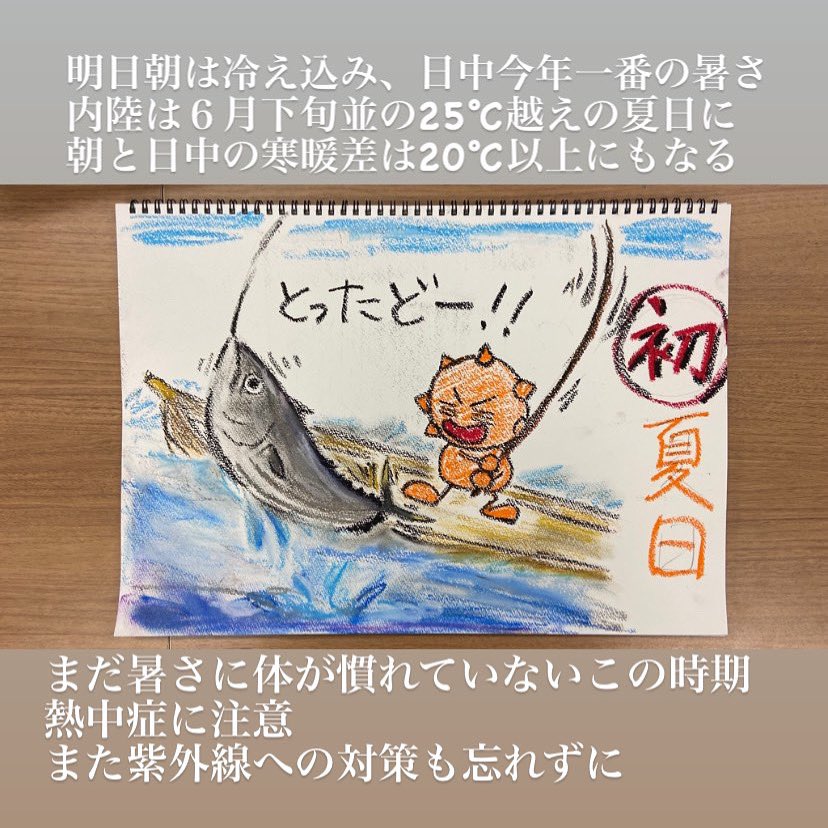 明日朝は冷え込み、日中今年一番の暑さ
内陸は６月下旬並の25℃越えの夏日に
朝と日中の寒暖差は20℃以上にもなる
とったどー!!
初
夏日
まだ暑さに体が慣れていないこの時期
熱中症に注意
また紫外線への対策も忘れずに